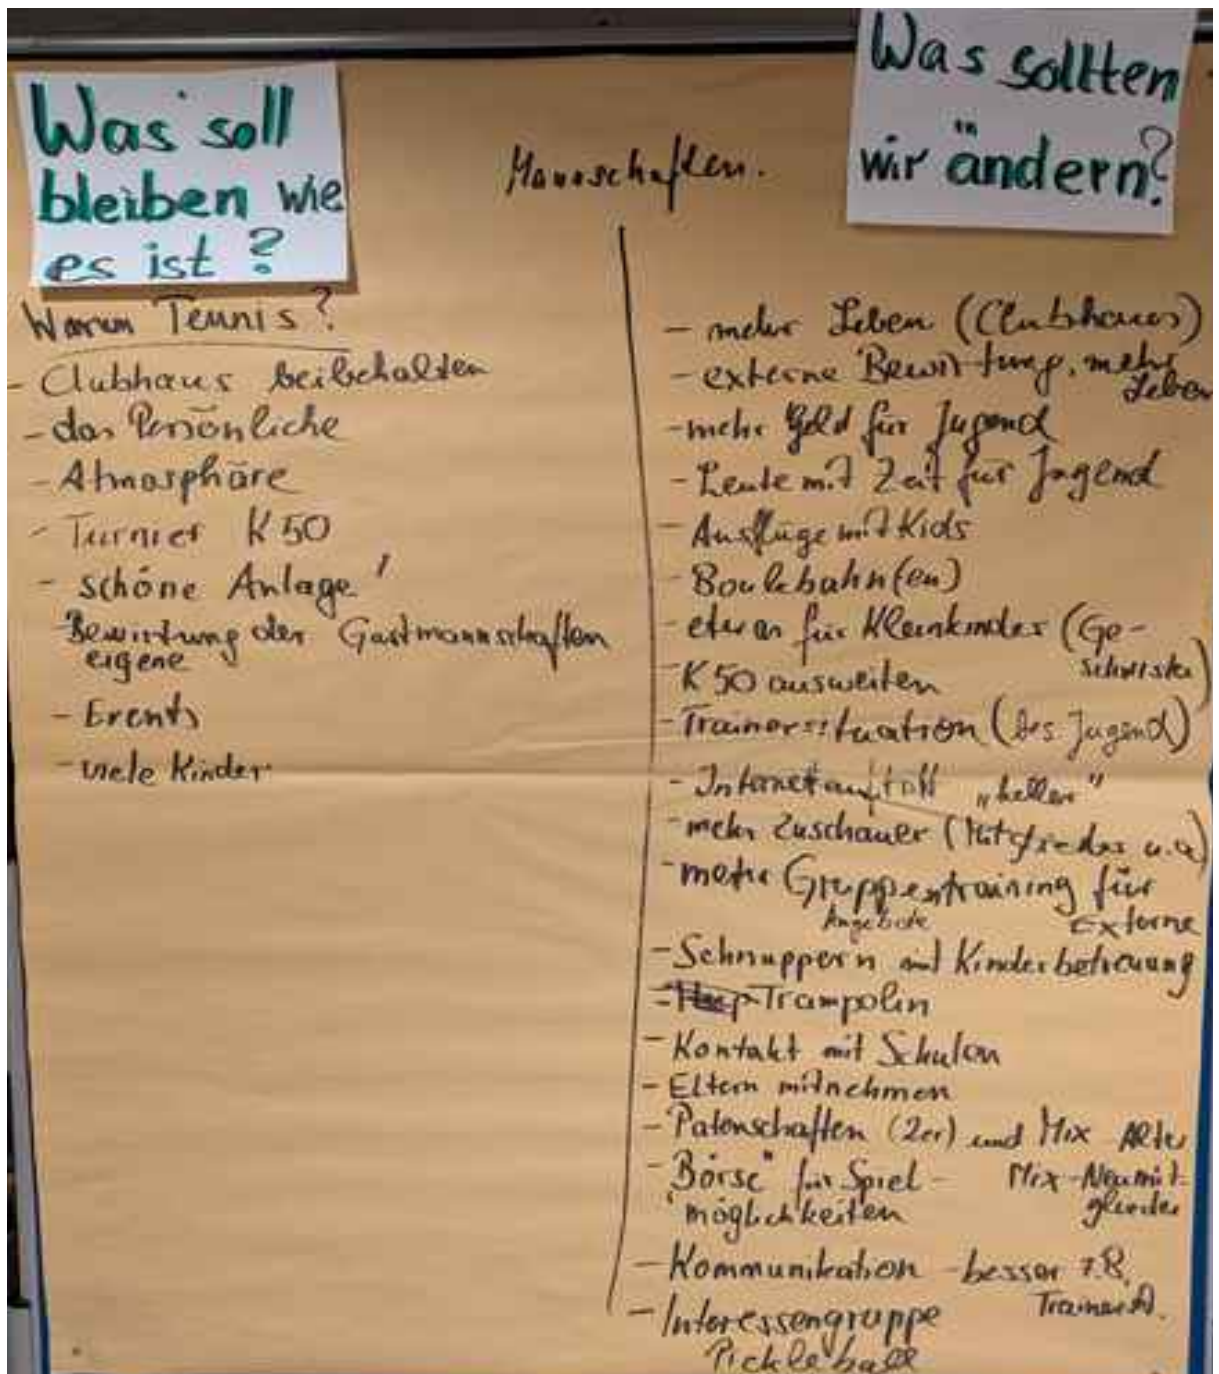 Was soll
bleiben wie
es ist?
Mannschaften.
Was sollten
wir ändern?
Warum Tennis?
- Clubhaus beibehalten
- das Persönliche
- Atmosphäre
- Turnier K 50
- schöne Anlage!
- Bewirtung der Gastmannschaften
eigene
- Events
- viele Kinder
- mehr Leben (Clubhaus)
- externe Bewirtung, mehr
Leben
- mehr Geld für Jugend
- Leute mit Zeit für Jugend
- Ausflüge mit Kids
- Boulebahn(en)
- etwas für Kleinkinder (Ge-
schwister)
- K 50 ausweiten
- Trainersituation (bes. Jugend)
- Internetauftritt „heller"
- mehr Zuschauer (Mitglieder u.a)
- mehr Gruppentraining für
Angebote Externe
- Schnuppern mit Kinderbetreuung
- Trampolin
- Kontakt mit Schulen
- Eltern mitnehmen
- Patenschaften (2er) und Mix Alter
- „Börse" für Spiel- Mix-Neumit-
möglichkeiten glieder
- Kommunikation - besser z.B.
- Interessengruppe
Pickleball